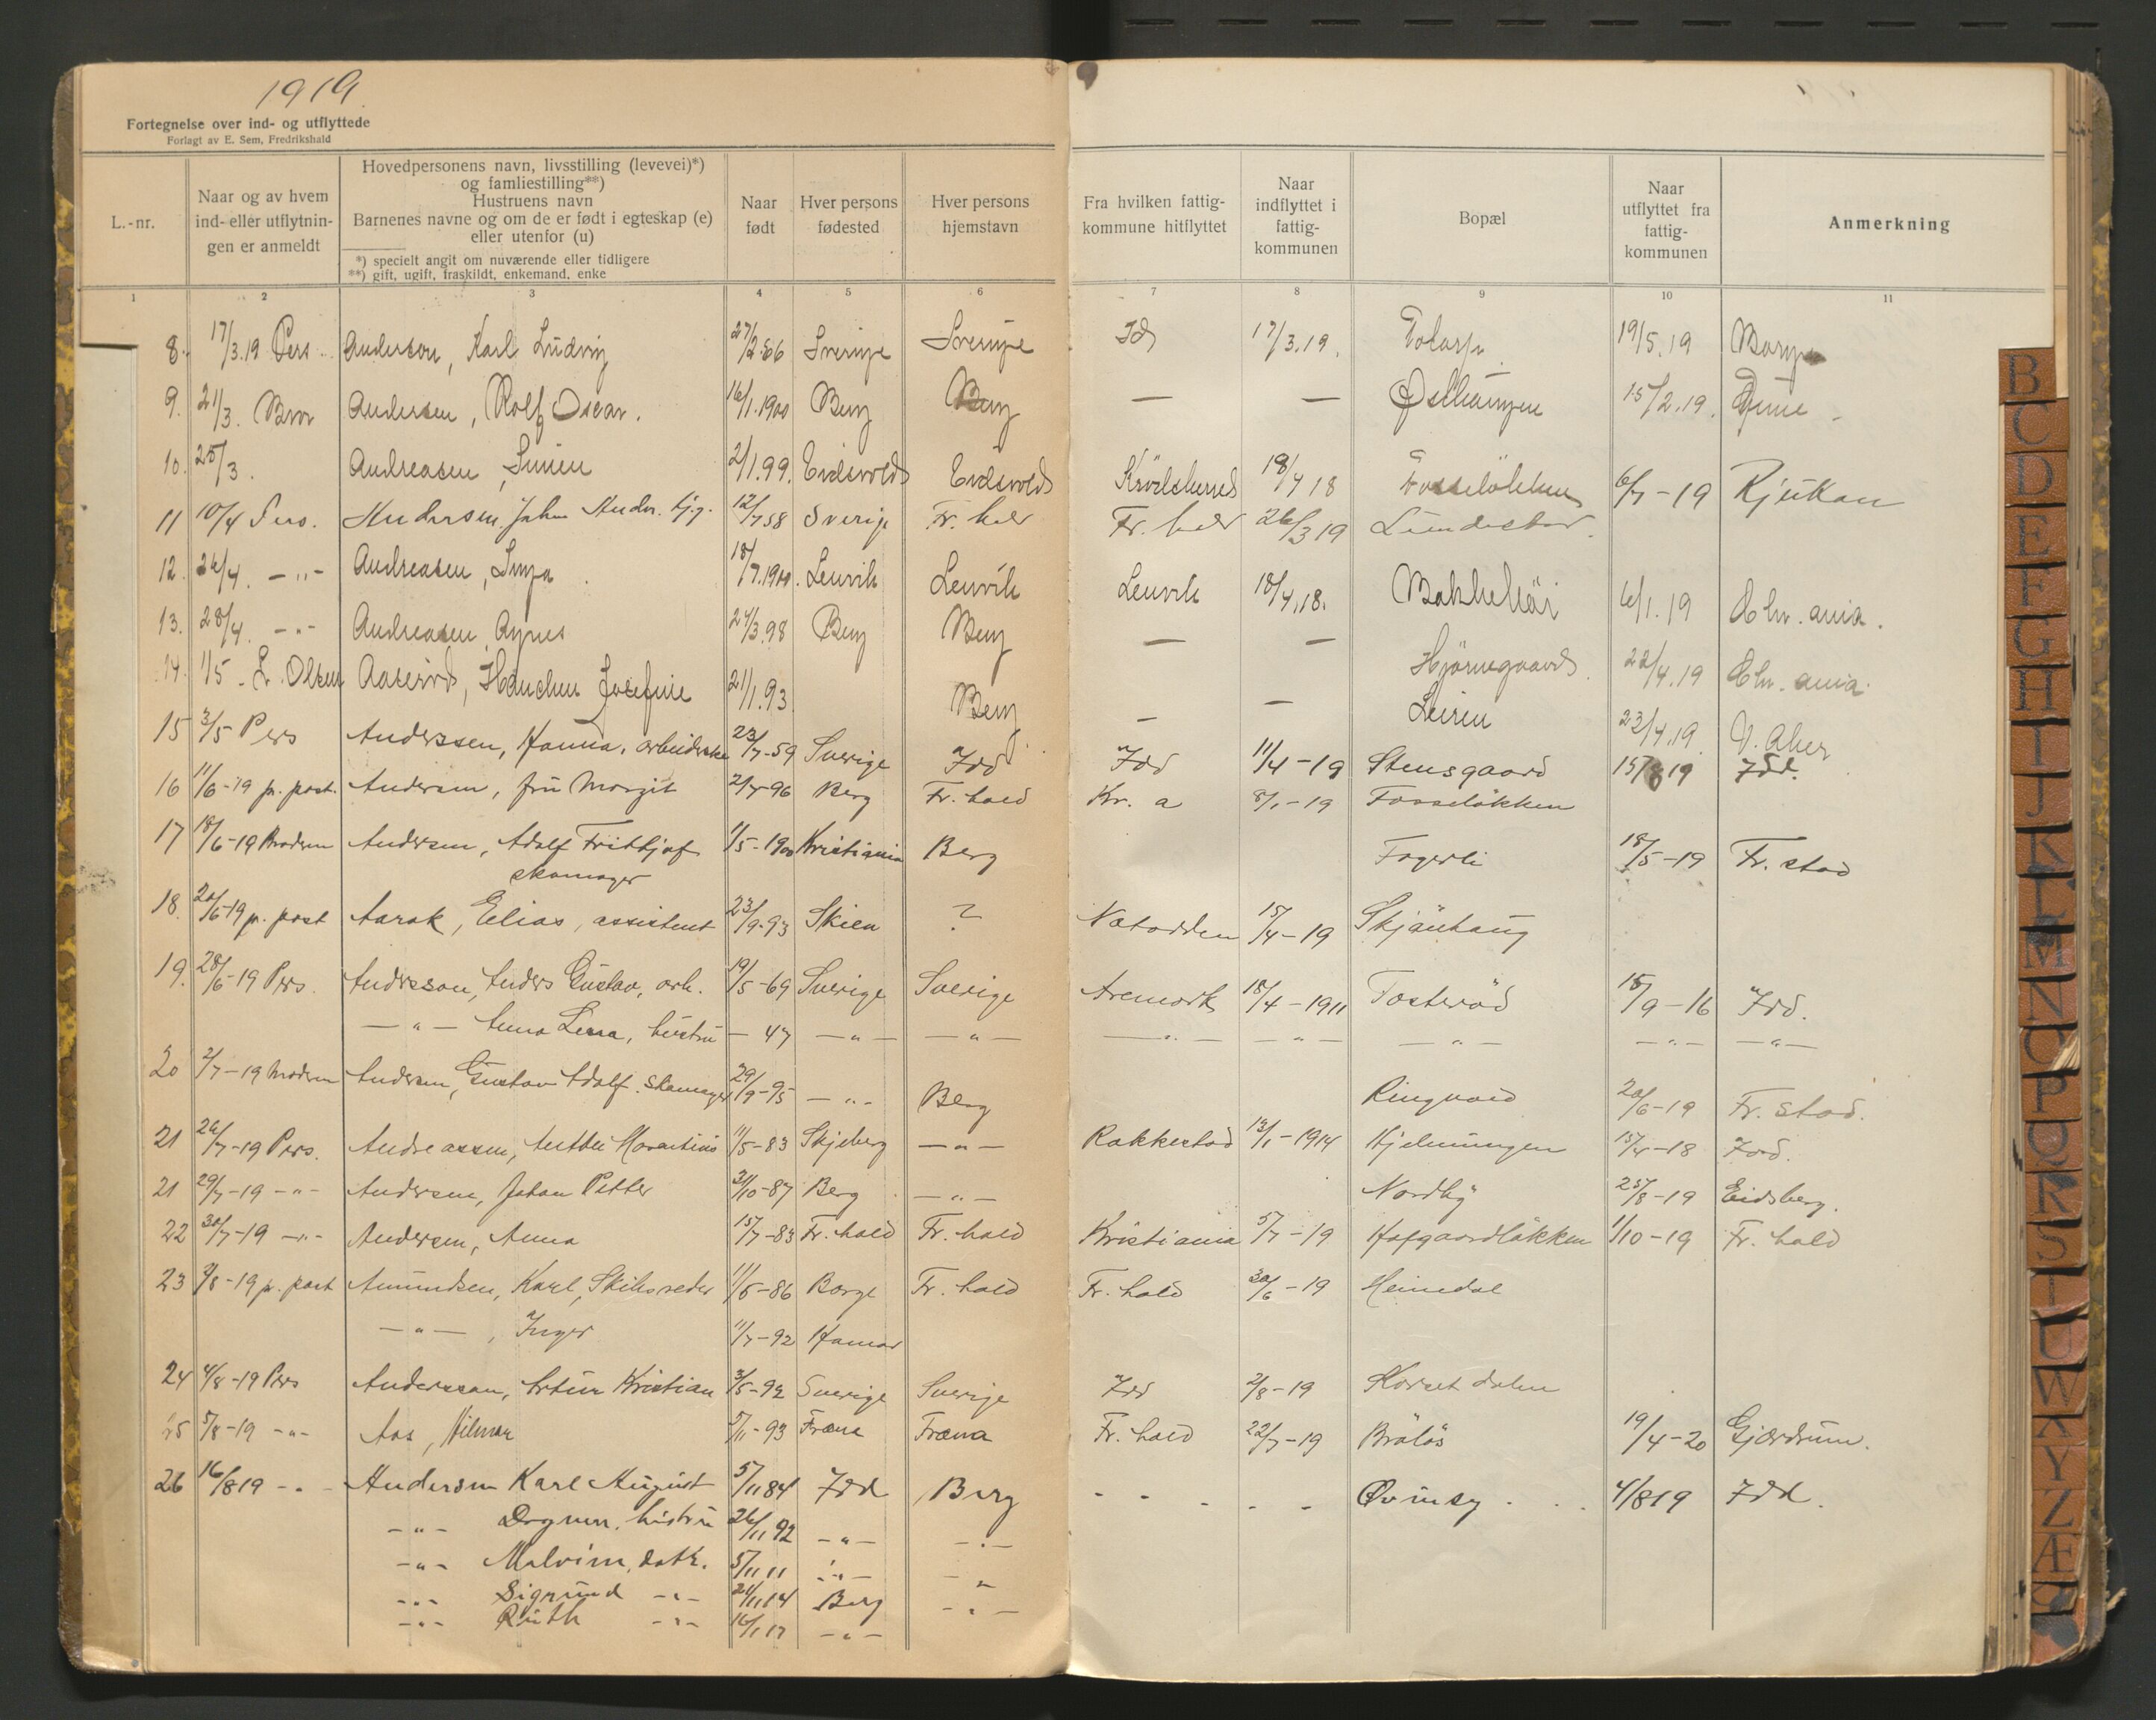 1919
Fortegnelse over ind- og utflyttede
Forlagt av E. Sem, Fredrikshald
L.-nr.
Naar og av hvem ind- eller utflytnin-gen er anmeldt
Hovedpersonens navn, livsstilling (levevei)*)
og famliestilling**)
Hustruens navn
Barnenes navne og om de er født i egteskap (e)
eller utenfor (u)
*) specielt angit om nuværende eller tidligere
**) gift, ugift, fraskildt, enkemand, enke
Naar født
Hver persons fødested
Hver persons hjemstavn
Fra hvilken fattig-kommune hitflyttet
Naar indflyttet i fattig-kommunen
Bopæl
Naar utflyttet fra fattig-kommunen
Anmerkning
1 2 3 4 5 6 7 8 9 10 11
8. 17/3.19 Pers. Anderson, Karl Ludvig 27/2.66 Sverige Sverige Id 17/3.19. 19/5.19 Borge
9. 21/3. Bror Andersen, Rolf Oscar. 16/1.1900 Berg Berg — — Østhaugen 15/2.19.
10. 25/3. Andreasen, 2/1.99. Eidsvold Eidsvold Krødsherred 18/4 18 Fosseløkken 6/7-19 Rjukan
11 10/4 Pers. Andersen, John Andr. 12/7 58 Sverige Fr. hald Fr. hald 26/3 19 Lundestad.
12. 24/4. -"- Andreasen, 18/7.1900. Lenvik Lenvik Lenvik 18/4.18. Bakkehöi 6/1.19 Chr.ania.
13. 28/4. -"- Andreasen, Agnes 24/3.98 Berg Berg — — Hjörnegaard. 22/4.19 Chr.ania.
14. 1/5. L. Olsen Aaseröd, Josefine 21/1.93. Berg — — Leiren 23/4.19. V. Aker
15 3/5 Pers Anderssen, Hanna, arbeiderske 23/7-59 Sverige Idd Idd 11/4-19 Stensgaard 15/8 19 Idd.
16 11/6-19 p. post. Andersen, fru Margit 2/4-96 Berg Fr. hald Kr. a 8/1-19 Fosseløkken
17 18/6-19 Broderen Andersen, Adolf Frithjof 1/5-1900 Kristiania Berg Fagerli 18/5-19 Fr. stad
skomager
18. 20/6-19 p. post Aarak, Elias, assistent 23/9-93 Skien ? Notodden 15/4-19 Skjönhaug
19. 28/6-19 Pers. Andersson, Anders Gustav, arb. 19/5-69 Sverige Sverige Aremark 18/4-1911 Fosteröd 18/9-16 Idd.
—"— Anna Lena, hustru — 47 —"— —"— —"— —"— —"— —"— —"—
20 2/7-19 Moderen Andersen, Gustav Adolf. Skomager 29/9-95 —"— Berg Ringvold 20/6-19 Fr. stad.
21 26/7-19 Pers. Andreassen, Anthu 11/5-83 Skjeberg —"— Rakkestad 13/1-1914 Hjelmungen 15/4-18 Idd.
21 29/7-19 -"- Andersen, Johan Petter 31/10-87 Berg —"— Nordby 25/8-19 Eidsberg.
22 30/7-19 -"- Andersen, Anna 15/7-83 Fr. hald Fr. hald Kristiania 5/7-19 Hofgaardløkken 1/10-19 Fr. hald
23 2/8-19 p. post Amundsen, Karl, Skibsreder 11/6-86 Borge Fr. hald Fr. hald 30/6-19 Heimdal
—"—, Inger 11/7-92 Hamar
24 4/8-19 Pers Andersson, Artur Kristian 3/5-92 Sverige Sverige Idd 2/8-19 Korsetdalen
25 5/8-19 -"- Aas, Hilmar 5/11-93 Fræna Fræna Fr. hald 22/7-19 Bråtås 19/4-20 Gjerdrum.
26 16/8 19 -"- Andersen Karl August 5/11 84 Idd Berg - - - - - 4/8 19 Idd.
-"- Dagmar, hustru 26/11 92 -"- -"-
-"- Malvine, datt. 5/11 11 -"- -"-
-"- Sigrund -"- 21/11 14 Berg -"-
-"- Ruth -"- 16/1 17 -"-
B
C
D
E
F
G
H
I
J
K
L
M
N
O
P
Q
R
S
T
U
W
X
Y
Z
Æ
Ø